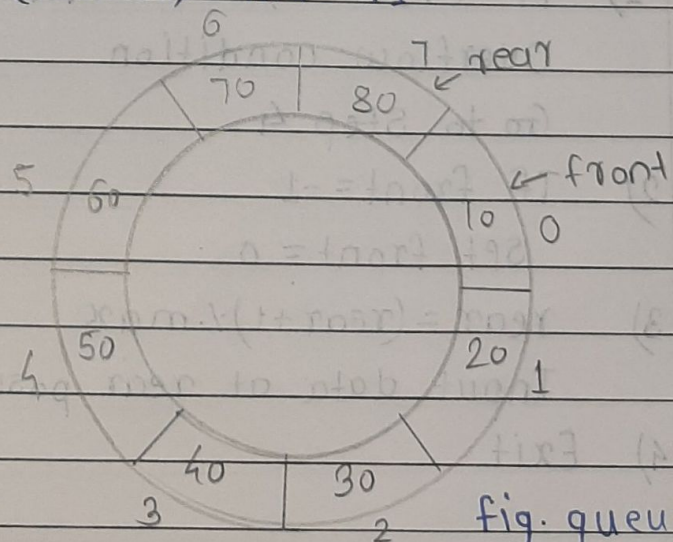 6
7 rear
70 80
5 60 front
10 0
50 20
4 1
40 30
3 2
fig. queu